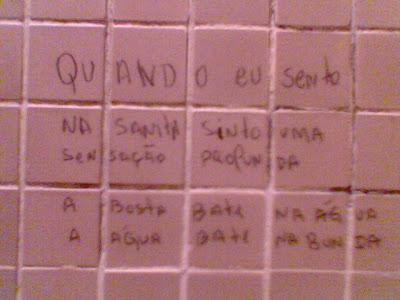 QUANDO eu sento
NA SANITA SINTO UMA
SENSAÇÃO PROFUNDA
A BOSTA BATE NA ÁGUA
A ÁGUA BATE NA BUNDA